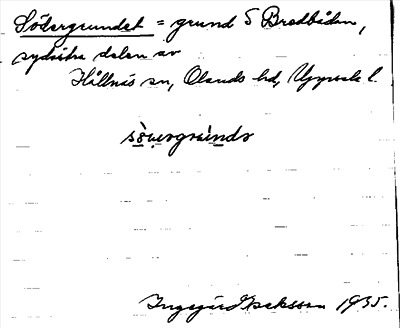 Södergrundet = grund S Bredbådan,
sydöstra delen av
Hållnäs sn, Olands hd, Uppsala l.
Ingegerd Isaksson 1935.